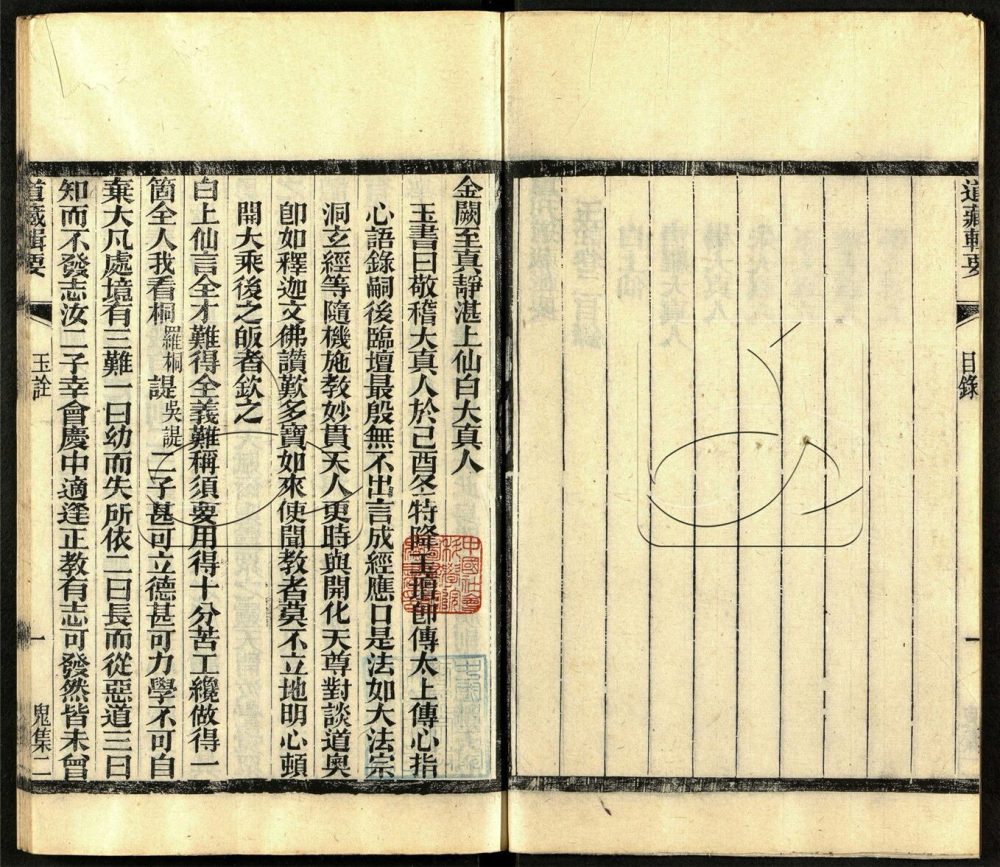 道藏輯要
目錄
一
金闕至真靜湛上仙白大真人
玉書曰敬稽大真人於己酉冬特降玉壇卽傳太上傳心指
心語錄嗣後臨壇最殷無不出言成經應口是法如大法宗
洞玄經等隨機施教妙貫天人更時與開化天尊對談道奧
卽如釋迦文佛讚歎多寶如來使聞教者莫不立地明心頓
開大乘後之皈者欽之
白上仙言全才難得全義難稱須要用得十分苦工纔做得一
箇全人我看桐羅桐諟吳諟二子甚可立德甚可力學不可自
棄大凡處境有三難一曰幼而失所依二曰長而從惡道三曰
知而不發志汝二子幸會慶中適逢正教有志可發然皆未曾
道藏輯要
玉詮
一
鬼集二
中國社會
科學院